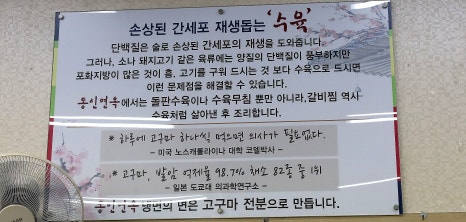 손상된 간세포 재생돕는 '수육'
단백질은 술로 손상된 간세포의 재생을 도와줍니다.
그러나, 소나 돼지고기 같은 육류에는 양질의 단백질이 풍부하지만
포화지방이 많은 것이 흠, 고기를 구워 드시는 것 보다 수육으로 드시면
이런 문제점을 해결할 수 있습니다.
옹진면옥에서는 돌판수육이나 수육무침 뿐만 아니라, 갈비찜 역시
수육처럼 삶아낸 후 조리합니다.
* 하루에 고구마 하나씩 먹으면 의사가 필요없다.
- 미국 노스캐롤라이나 대학 코델박사 -
* 고구마, 발암 억제율 98.7% 채소 82종 중 1위
- 일본 도쿄대 의과학연구소 -
옹진면옥 냉면의 면은 고구마 전분으로 만듭니다.